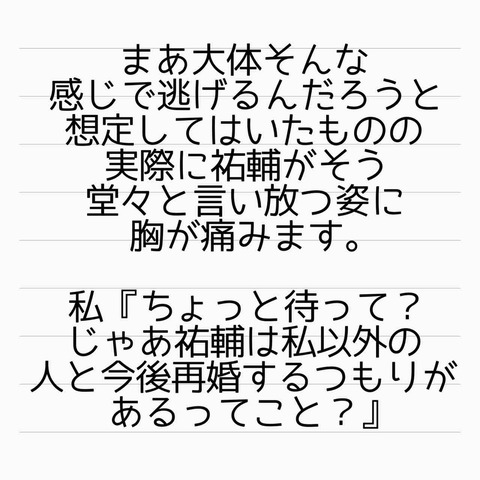 まあ大体そんな
感じで逃げるんだろうと
想定してはいたものの
実際に祐輔がそう
堂々と言い放つ姿に
胸が痛みます。
私『ちょっと待って？
じゃあ祐輔は私以外の
人と今後再婚するつもりが
あるってこと？』